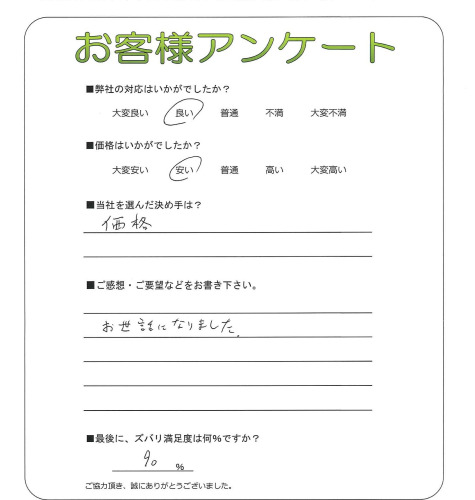 お客様アンケート
■弊社の対応はいかがでしたか？
大変良い 良い 普通 不満 大変不満
■価格はいかがでしたか？
大変安い 安い 普通 高い 大変高い
■当社を選んだ決め手は？
価格
■ご感想・ご要望などをお書き下さい。
お世話になりました.
■最後に、ズバリ満足度は何％ですか？
90 ％
ご協力頂き、誠にありがとうございました。